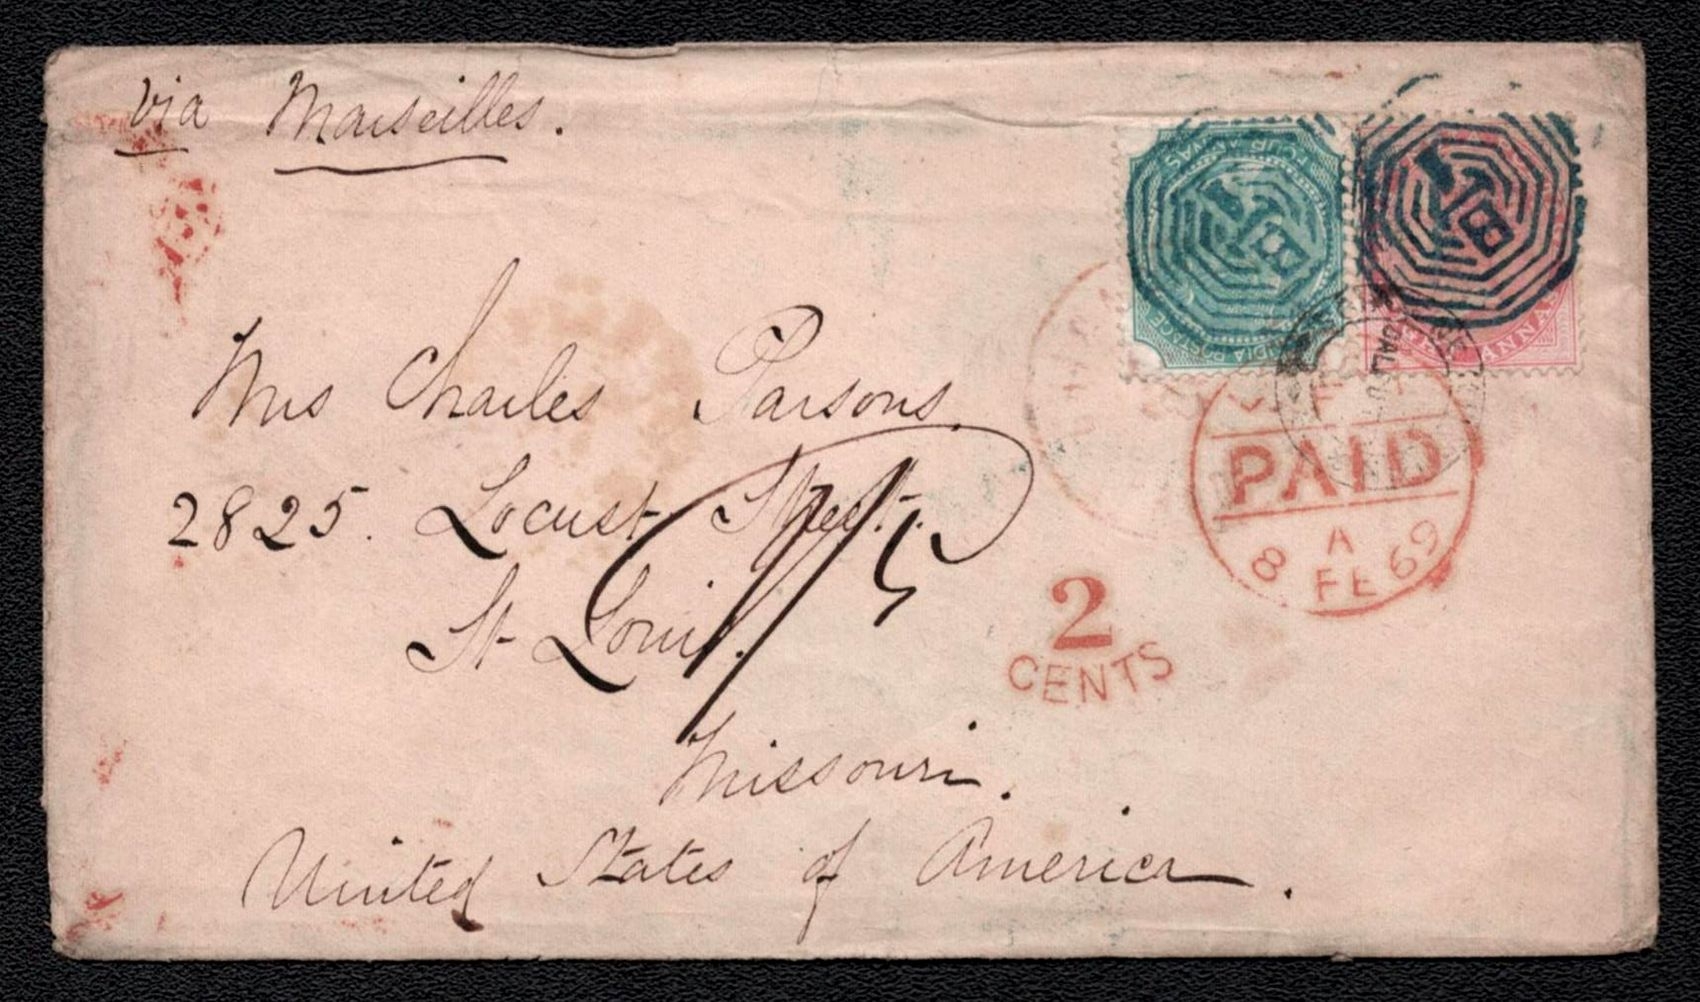 via Marseilles.
FOUR ANNAS
INDIA POSTAGE
B
1
B
1
ANNAS
PAID
A
8 FE 69
Mrs Charles Parsons.
2825. Locust Street.
St Louis.
Missouri.
United States of America.
2
CENTS